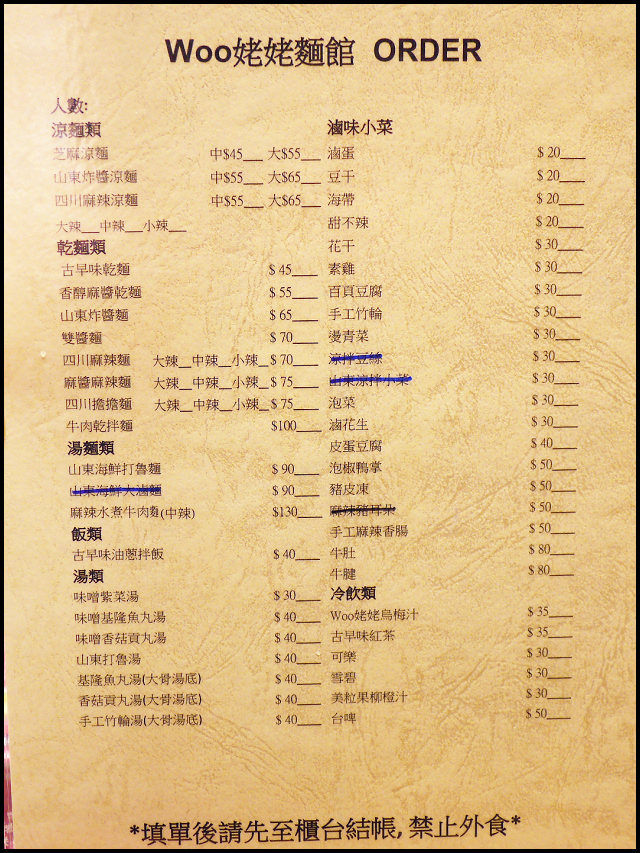 Woo姥姥麵館 ORDER
人數:
涼麵類
芝麻涼麵 中$45__ 大$55__
山東炸醬涼麵 中$55__ 大$65__
四川麻辣涼麵 中$55__ 大$65__
大辣__中辣__小辣__
乾麵類
古早味乾麵 $ 45___
香醇麻醬乾麵 $ 55___
山東炸醬麵 $ 65___
雙醬麵 $ 70___
四川麻辣麵 大辣__中辣__小辣_ $ 70___
麻醬麻辣麵 大辣__中辣__小辣_ $ 75___
四川擔擔麵 大辣__中辣__小辣_ $ 75___
牛肉乾拌麵 $100___
湯麵類
山東海鮮打魯麵 $ 90___
山東海鮮大滷麵 $ 90___
麻辣水煮牛肉麵(中辣) $130___
飯類
古早味油蔥拌飯 $ 40___
湯類
味噌紫菜湯 $ 30___
味噌基隆魚丸湯 $ 40___
味噌香菇貢丸湯 $ 40___
山東打魯湯 $ 40___
基隆魚丸湯(大骨湯底) $ 40___
香菇貢丸湯(大骨湯底) $ 40___
手工竹輪湯(大骨湯底) $ 40___
滷味小菜
滷蛋 $ 20___
豆干 $ 20___
海帶 $ 20___
甜不辣 $ 20___
花干 $ 30___
素雞 $ 30___
百頁豆腐 $ 30___
手工竹輪 $ 30___
燙青菜 $ 30___
涼拌豆絲 $ 30___
山東涼拌小菜 $ 30___
泡菜 $ 30___
滷花生 $ 30___
皮蛋豆腐 $ 40___
泡椒鴨掌 $ 50___
豬皮凍 $ 50___
麻辣豬耳朵 $ 50___
手工麻辣香腸 $ 50___
牛肚 $ 80___
牛腱 $ 80___
冷飲類
Woo姥姥烏梅汁 $ 35___
古早味紅茶 $ 35___
可樂 $ 30___
雪碧 $ 30___
美粒果柳橙汁 $ 30___
台啤 $ 50___
*填單後請先至櫃台結帳, 禁止外食*